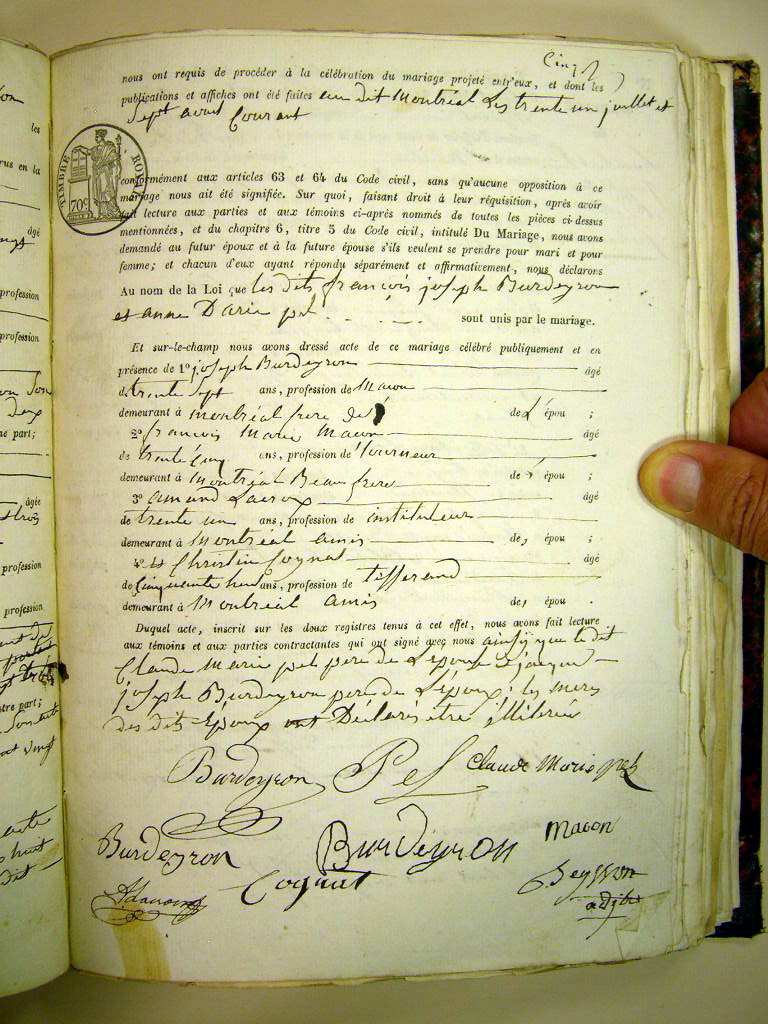 Cinq
nous ont requis de procéder à la célébration du mariage projeté entr'eux, et dont les
publications et affiches ont été faites au dit Montréal Les trente un juillet et
Sept aout Courant
TIMBRE ROYAL
709
conformément aux articles 63 et 64 du Code civil, sans qu'aucune opposition à ce
mariage nous ait été signifiée. Sur quoi, faisant droit à leur réquisition, après avoir
fait lecture aux parties et aux témoins ci-après nommés de toutes les pièces ci-dessus
mentionnées, et du chapitre 6, titre 5 du Code civil, intitulé Du Mariage, nous avons
demandé au futur époux et à la future épouse s'ils veulent se prendre pour mari et pour
femme; et chacun d'eux ayant répondu séparément et affirmativement, nous déclarons
Au nom de la Loi que les dits francois joseph Burdeyron
et anne Darie pel sont unis par le mariage.
Et sur-le-champ nous avons dressé acte de ce mariage célébré publiquement et en
présence de 1º joseph Burdeyron âgé
de trente Sept ans, profession de Macon
demeurant à montréal frere de L'épou ;
2º francois Marie Macon âgé
de trente Cinq ans, profession de tourneur
demeurant à Montréal Beau frere de L'épou ;
3º amand Lacroix âgé
de trente un ans, profession de instituteur
demeurant à Montréal amis de, épou ;
4º Christin Cognat âgé
de Cinquante huit ans, profession de tifferand
demeurant à Montréal amis de, épou .
Duquel acte, inscrit sur les doux registres tenus à cet effet, nous avons fait lecture
aux témoins et aux parties contractantes qui ont signé avec nous ainsy que le dit
Claude Marie pel pere de L'épouse et jacques
joseph Burdeyron pere de L'époux; les meres
des dits Époux ont Déclaré être illitérée
Burdeyron Pel Claude Marie pel
Burdeyron Burdeyron Macon
Alacroix Cognat Peysson
adjt